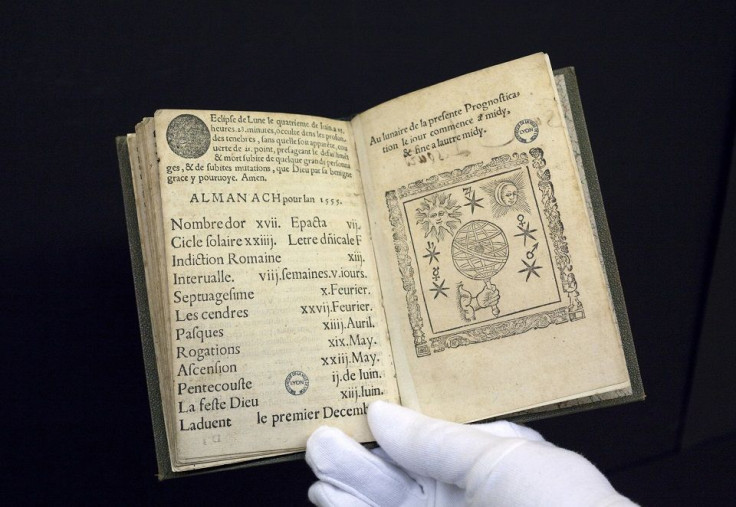 Eclipse de Lune le quatrieme de Iuin a
heures 21. minutes, occulte dens les profun-
des tenebres, sans quelle soit apparente,
uerte de point, presageant le
& mort subite de quelque grand personna
ges, & de subites mutations, que Dieu par sa benigne
grace y pouruoye. Amen.
ALMANACH pour lan 1555.
Nombre dor xvii. Epacta vij.
Cicle solaire xxiij. Letre dñicale F
Indiction Romaine xiij.
Interualle. viij. semaines. v. iours.
Septuagesime x. Feurier.
Les cendres xxvij. Feurier.
Pasques xiiij. Auril.
Rogations xix. May.
Ascension xxiij. May.
Pentecouste ij. de Iuin.
La feste Dieu xiij. Iuin.
Laduent le premier Decemb
Au lunaire de la presente Prognostica,
tion le iour commence a midy,
& fine a lautre midy.
LYON
LYON